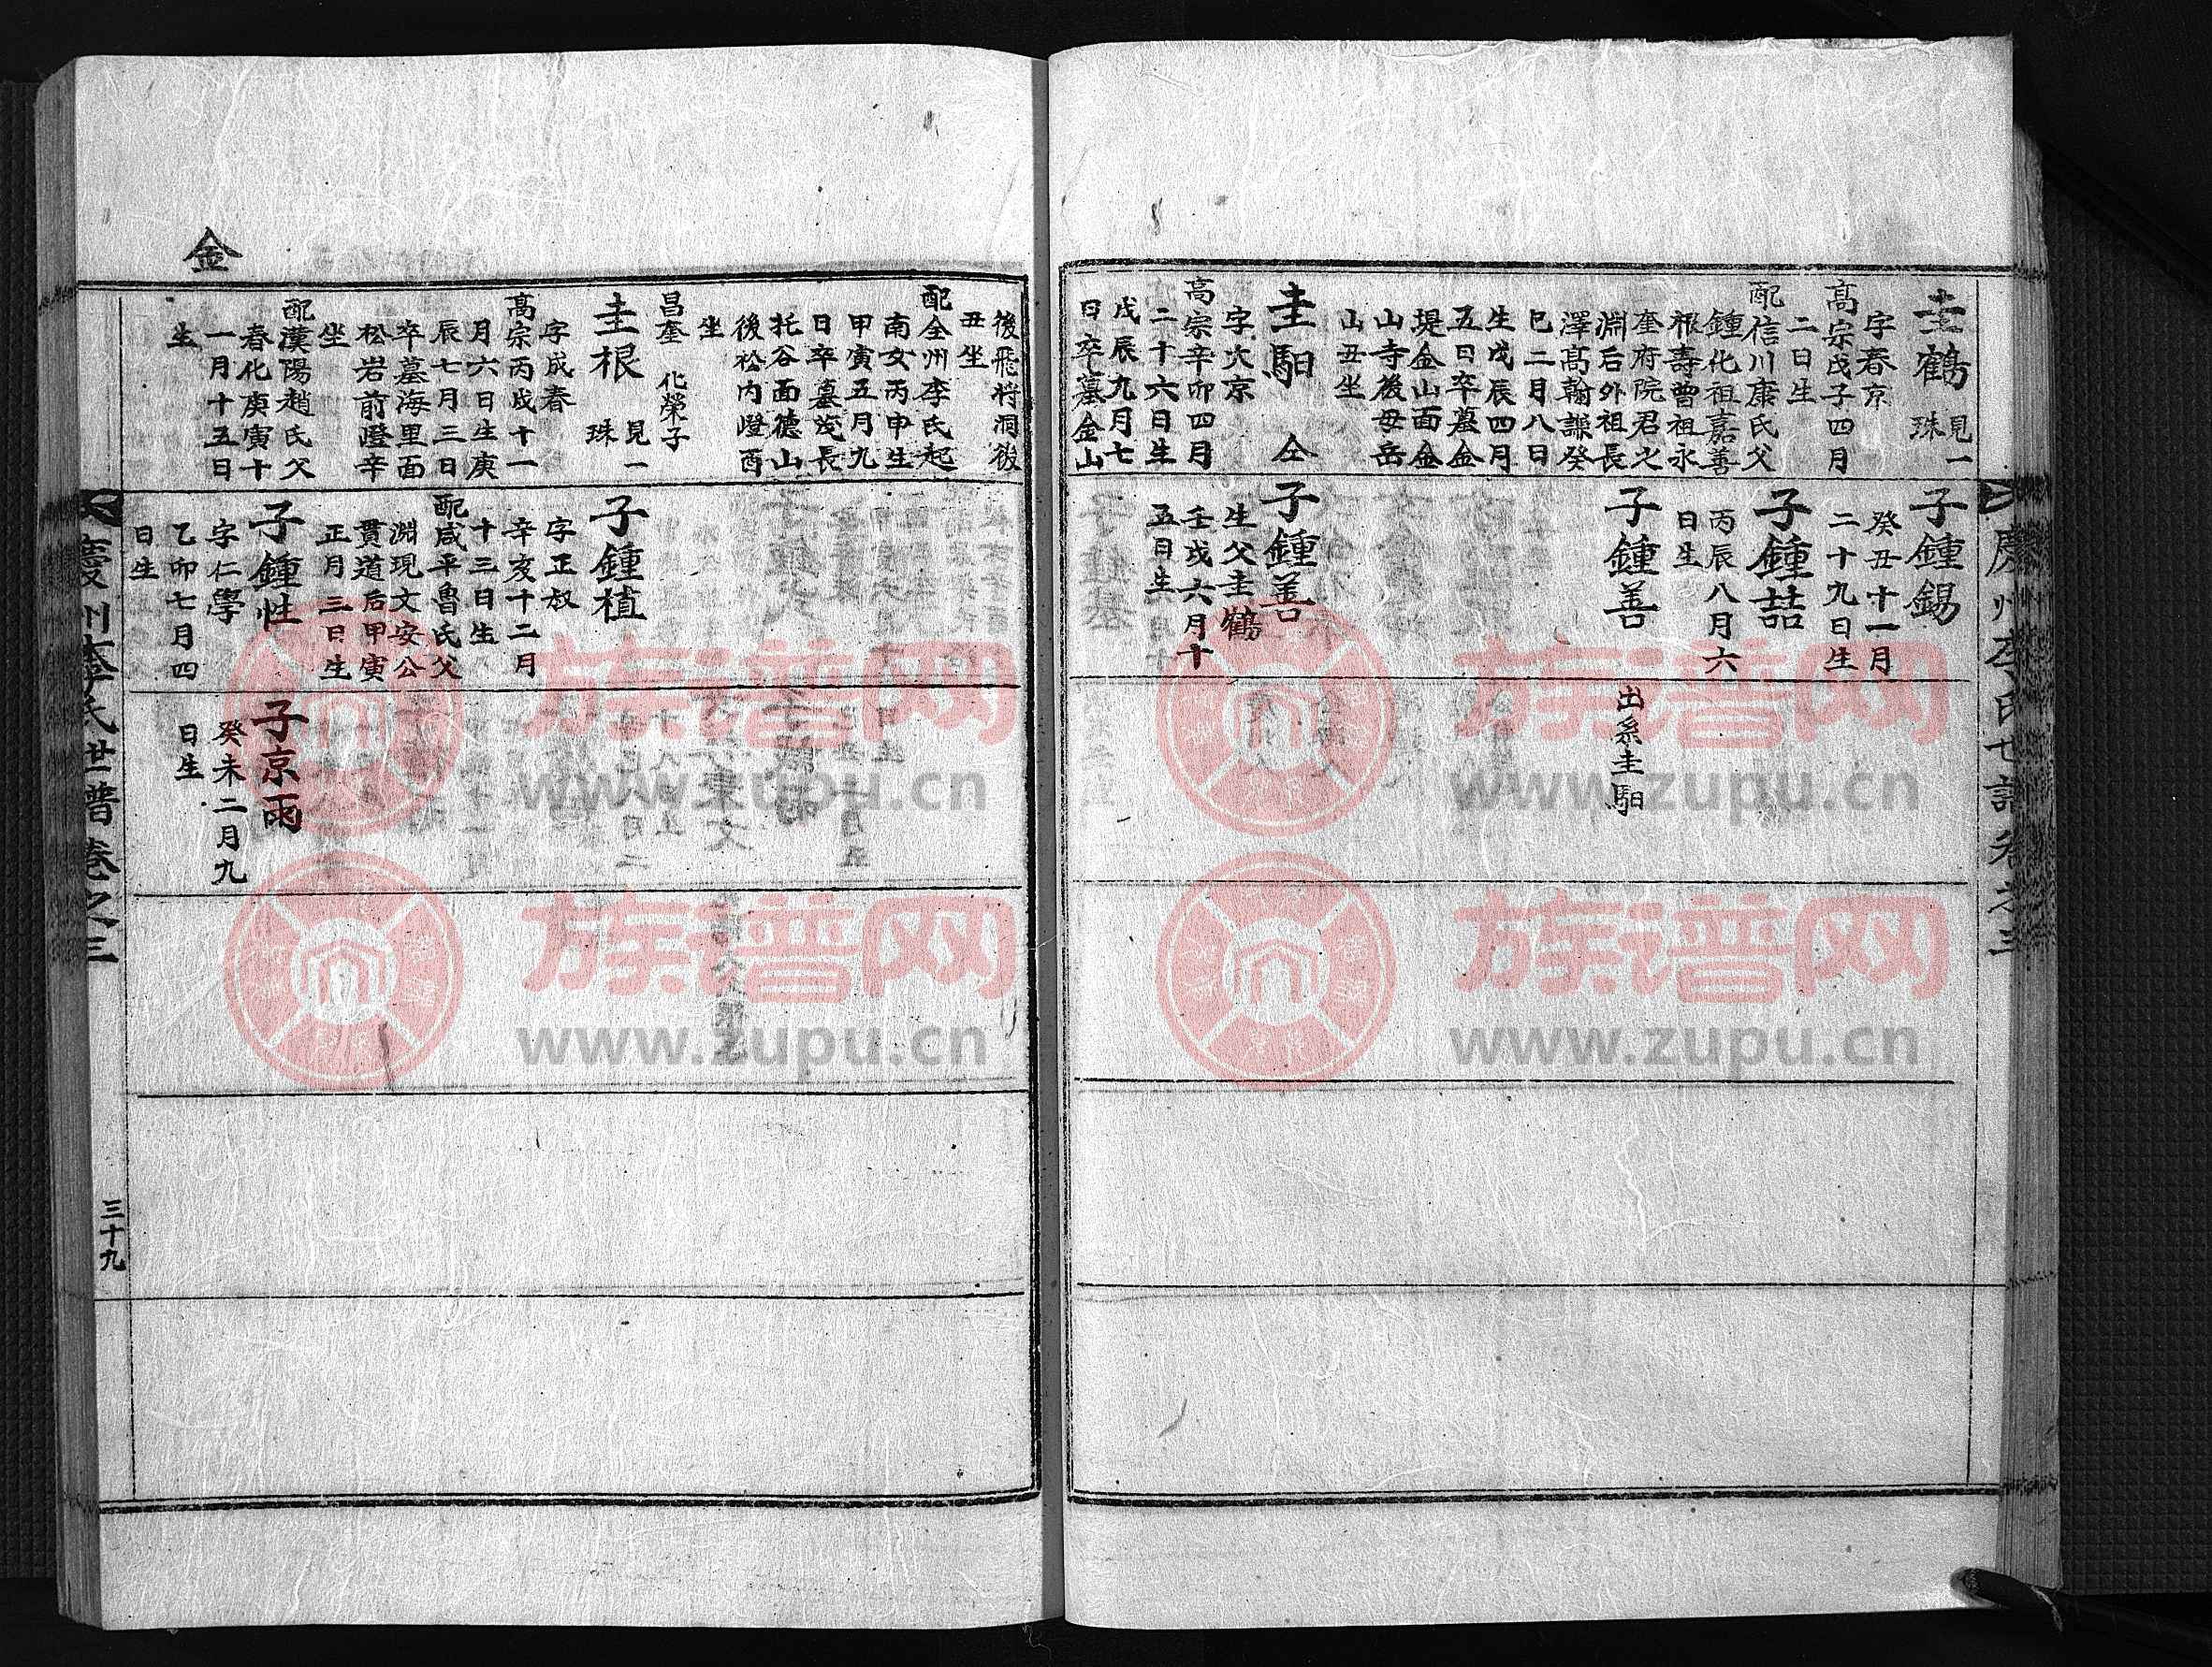 圭鶴 見一珠
字春京
高宗戊子四月
二日生
配信川康氏父
鍾化祖嘉善
根壽曾祖永
奎府院君之
淵后外祖長
澤高翰謙癸
巳二月八日
生戊辰四月
五日卒墓金
堤金山面金
山寺後母岳
山丑坐
圭馹 仝
字次京
高宗辛卯四月
二十六日生
戊辰九月七
日卒墓金山
子鍾錫
癸丑十一月
二十九日生
子鍾喆
丙辰八月六
日生
子鍾善
出系圭馹
子鍾善
生父圭鶴
壬戌六月十
五日生
慶州李氏世譜卷之三
金
後飛將洞後
丑坐
配全州李氏起
南女丙申生
甲寅五月九
日卒墓茂長
托谷面德山
後松內嶝酉
坐
昌奎 化榮子
圭根 見一珠
字成春
高宗丙戌十一
月六日生庚
辰七月三日
卒墓海里面
松岩前嶝辛
坐
配漢陽趙氏父
春化庚寅十
一月十五日
生
子鍾植
字正叔
辛亥十二月
十三日生
配咸平魯氏父
淵現文安公
貫道后甲寅
正月三日生
子鍾性
字仁學
乙卯七月四
日生
子京雨
癸未二月九
日生
慶州李氏世譜卷之三
三十九
族谱网
www.zupu.cn
族谱网
www.zupu.cn
族谱网
www.zupu.cn
族谱网
www.zupu.cn